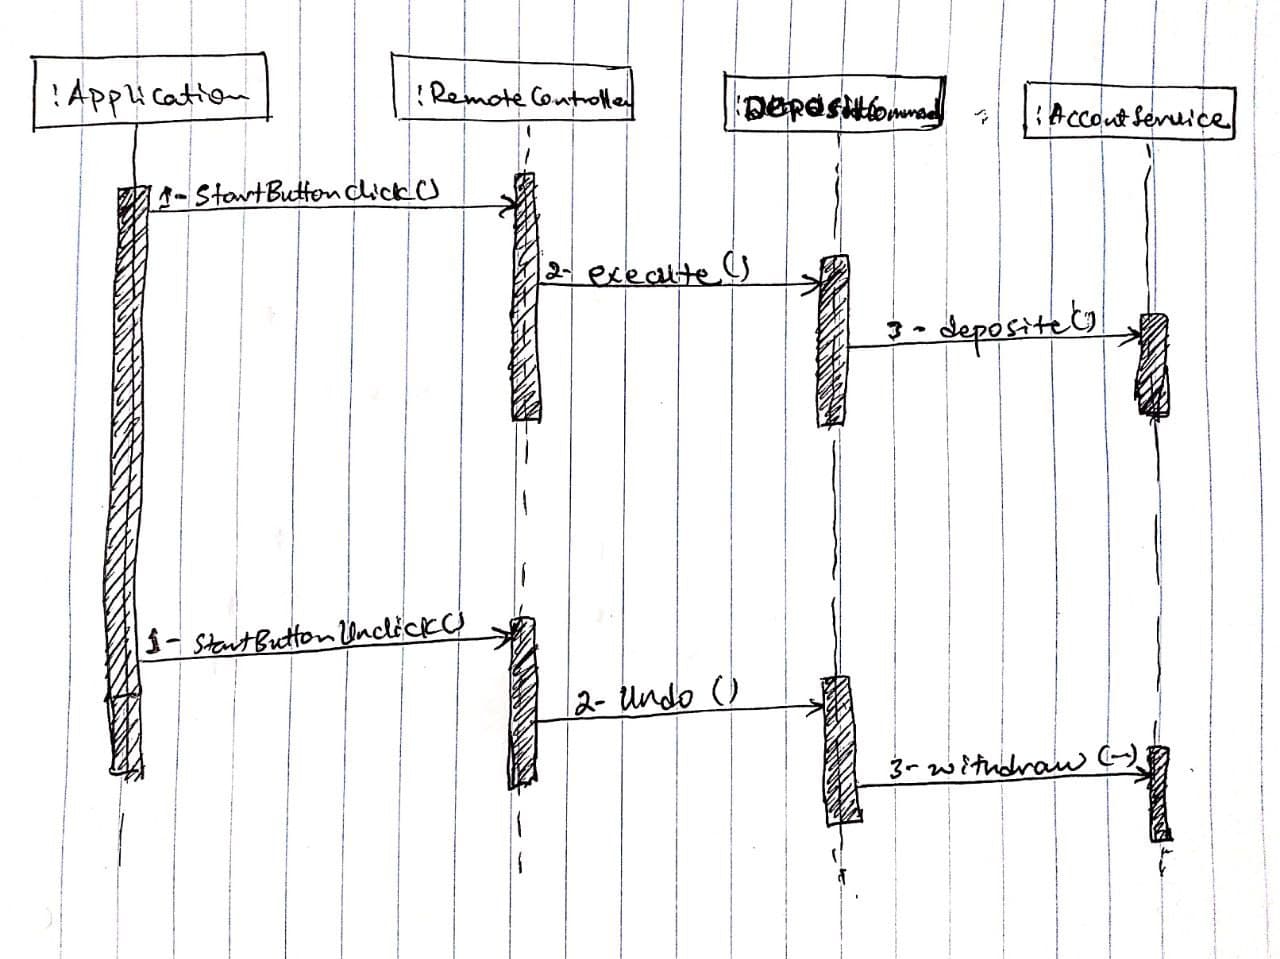 :Application
:RemoteController
:DepositCommand
:AccontService
1- StartButtonClick()
2- execute()
3- deposite()
1- StartButtonUnclick()
2- Undo ()
3- withdraw (-)